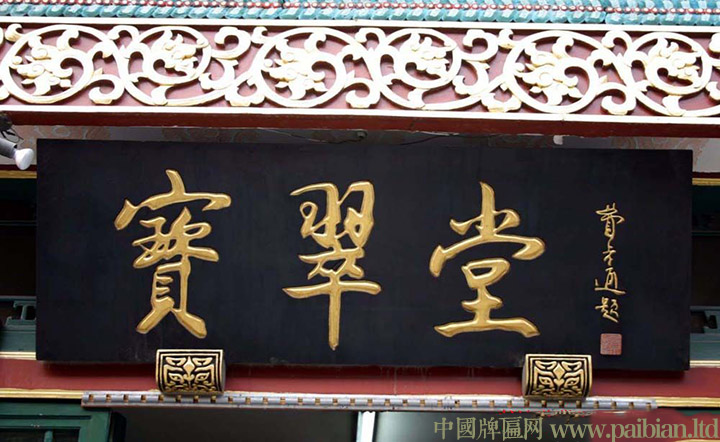 寶翠堂
費孝通題
中國牌匾网 www.paibian.ltd